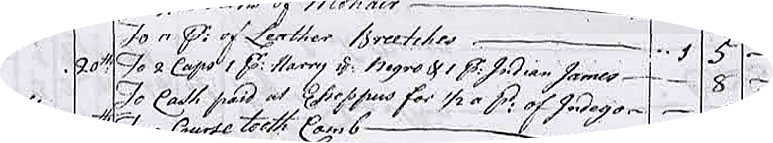 of Mohair
To a Pr. of Leather Breetches 1 5
20th To 2 Caps 1 Pr. Harry ye. Negro & 1 Pr. Indian James 8
To Cash paid at Esoppus for 1/2 a Pr. of Indego
Course tooth Comb